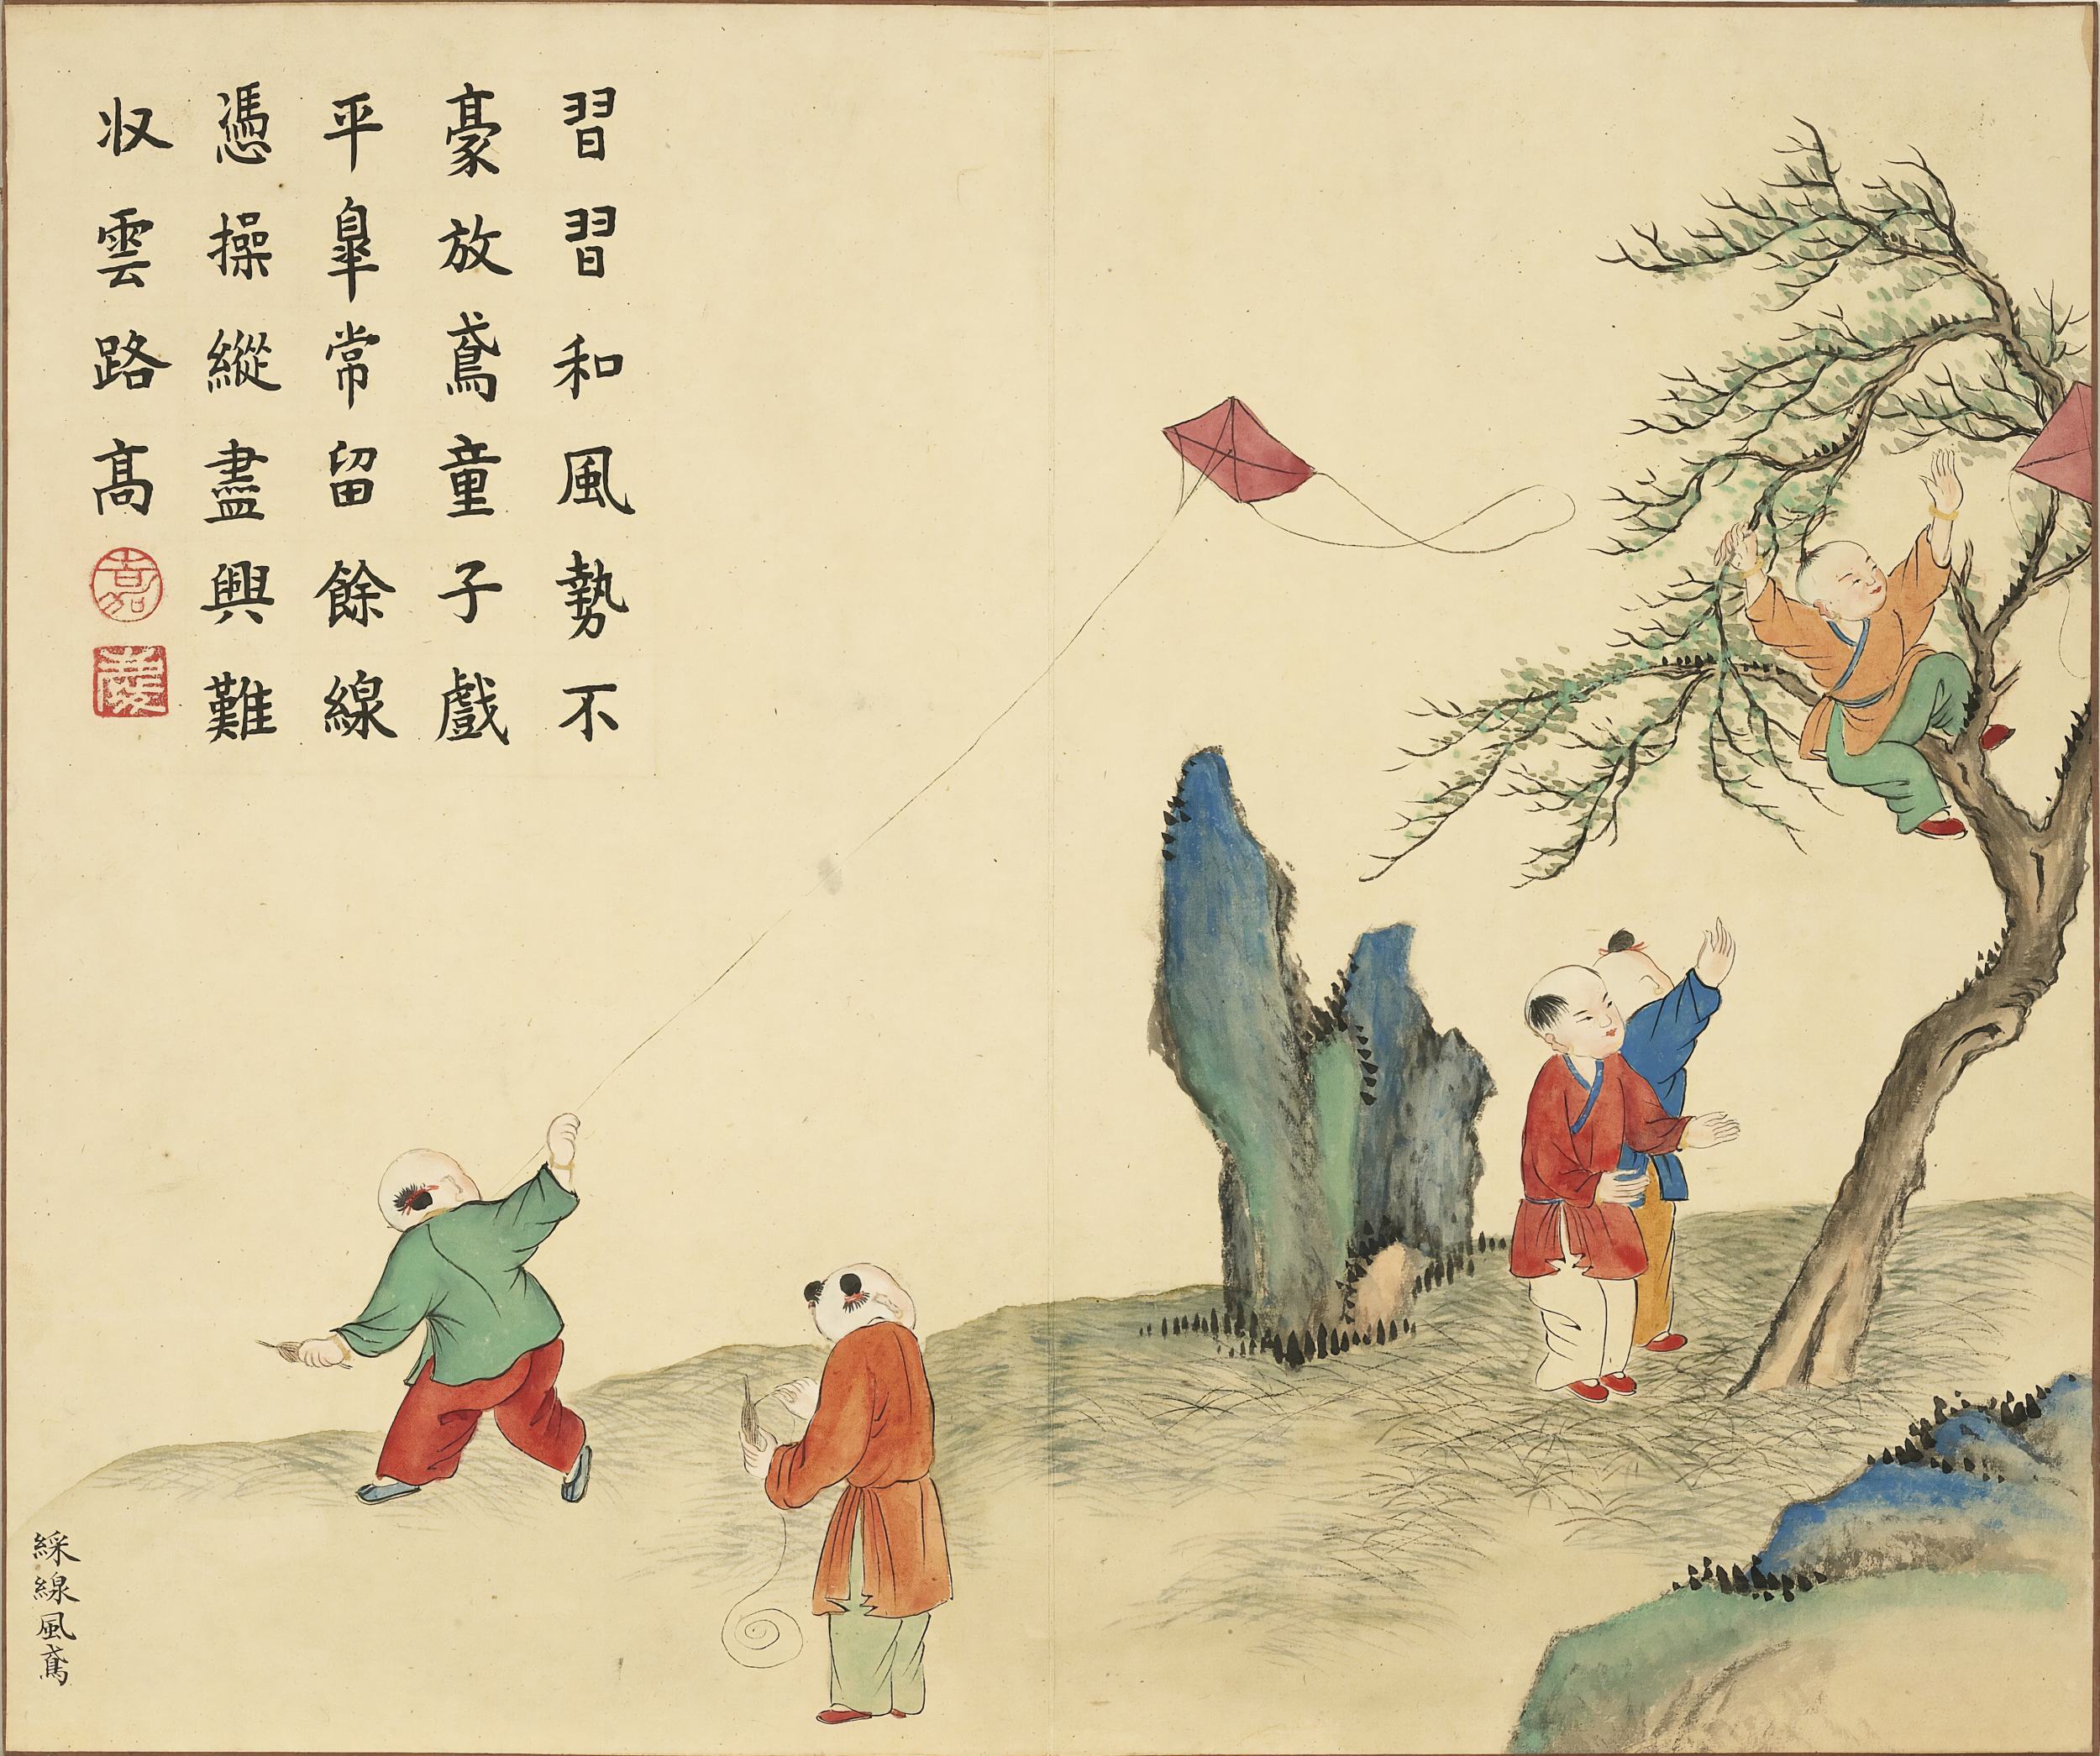 習習和風勢不
豪放鳶童子戲
平皐常留餘線
憑操縱盡興難
収雲路高
嘉
慶
綵線風鳶